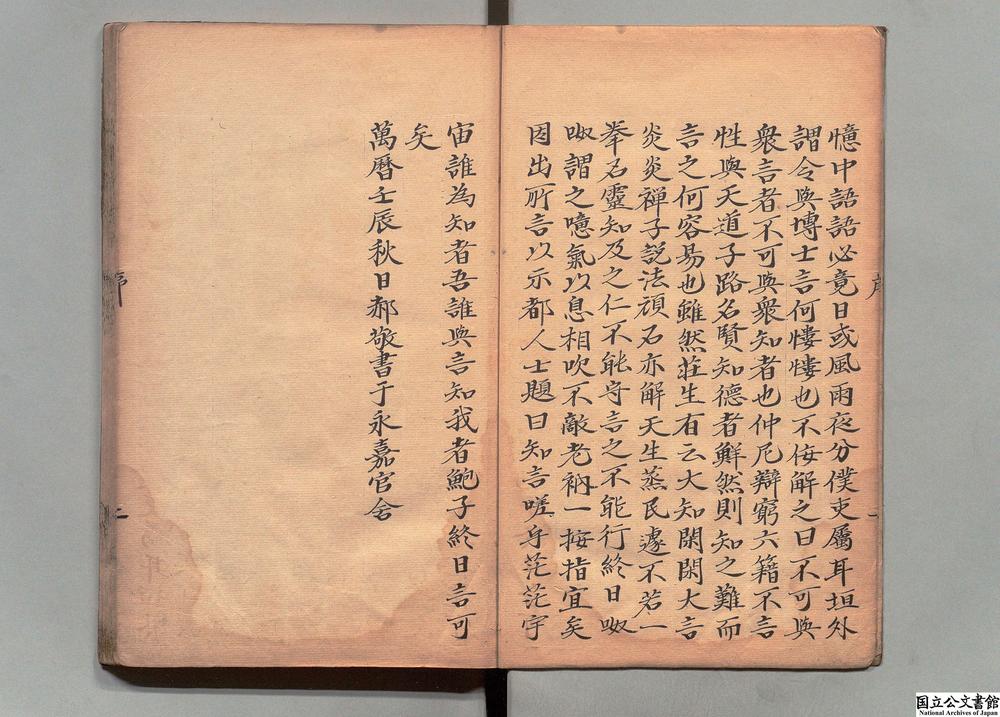 憶中語語必竟日或風雨夜分僕吏屬耳垣外
謂令與博士言何慺慺也不佞解之曰不可與
衆言者不可與衆知者也仲尼辯窮六籍不言
性與天道子路名賢知德者鮮然則知之難而
言之何容易也雖然莊生有云大知閑閑大言
炎炎禪子説法頑石亦解天生蒸民遽不若一
拳石靈知及之仁不能守言之不能行終日呶
呶謂之噫氣以息相吹不敵老衲一按指宜矣
因出所言以示都人士題曰知言嗟乎茫茫宇
宙誰為知者吾誰與言知我者鮑子終日言可
矣
萬曆壬辰秋日郝敬書于永嘉官舍
序
二
国立公文書館
National Archives of Japan